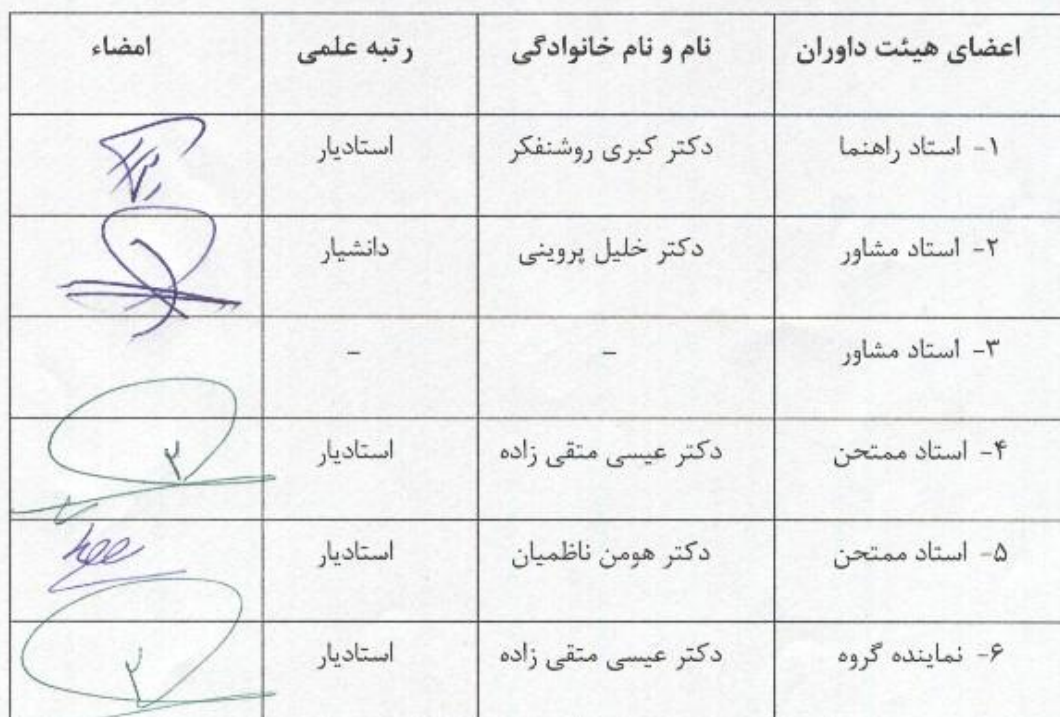 اعضای هیئت داوران نام و نام خانوادگی رتبه علمی امضاء
۱- استاد راهنما دکتر کبری روشنفکر استادیار
۲- استاد مشاور دکتر خلیل پروینی دانشیار
۳- استاد مشاور - -
۴- استاد ممتحن دکتر عیسی متقی زاده استادیار
۵- استاد ممتحن دکتر هومن ناظمیان استادیار
۶- نماینده گروه دکتر عیسی متقی زاده استادیار